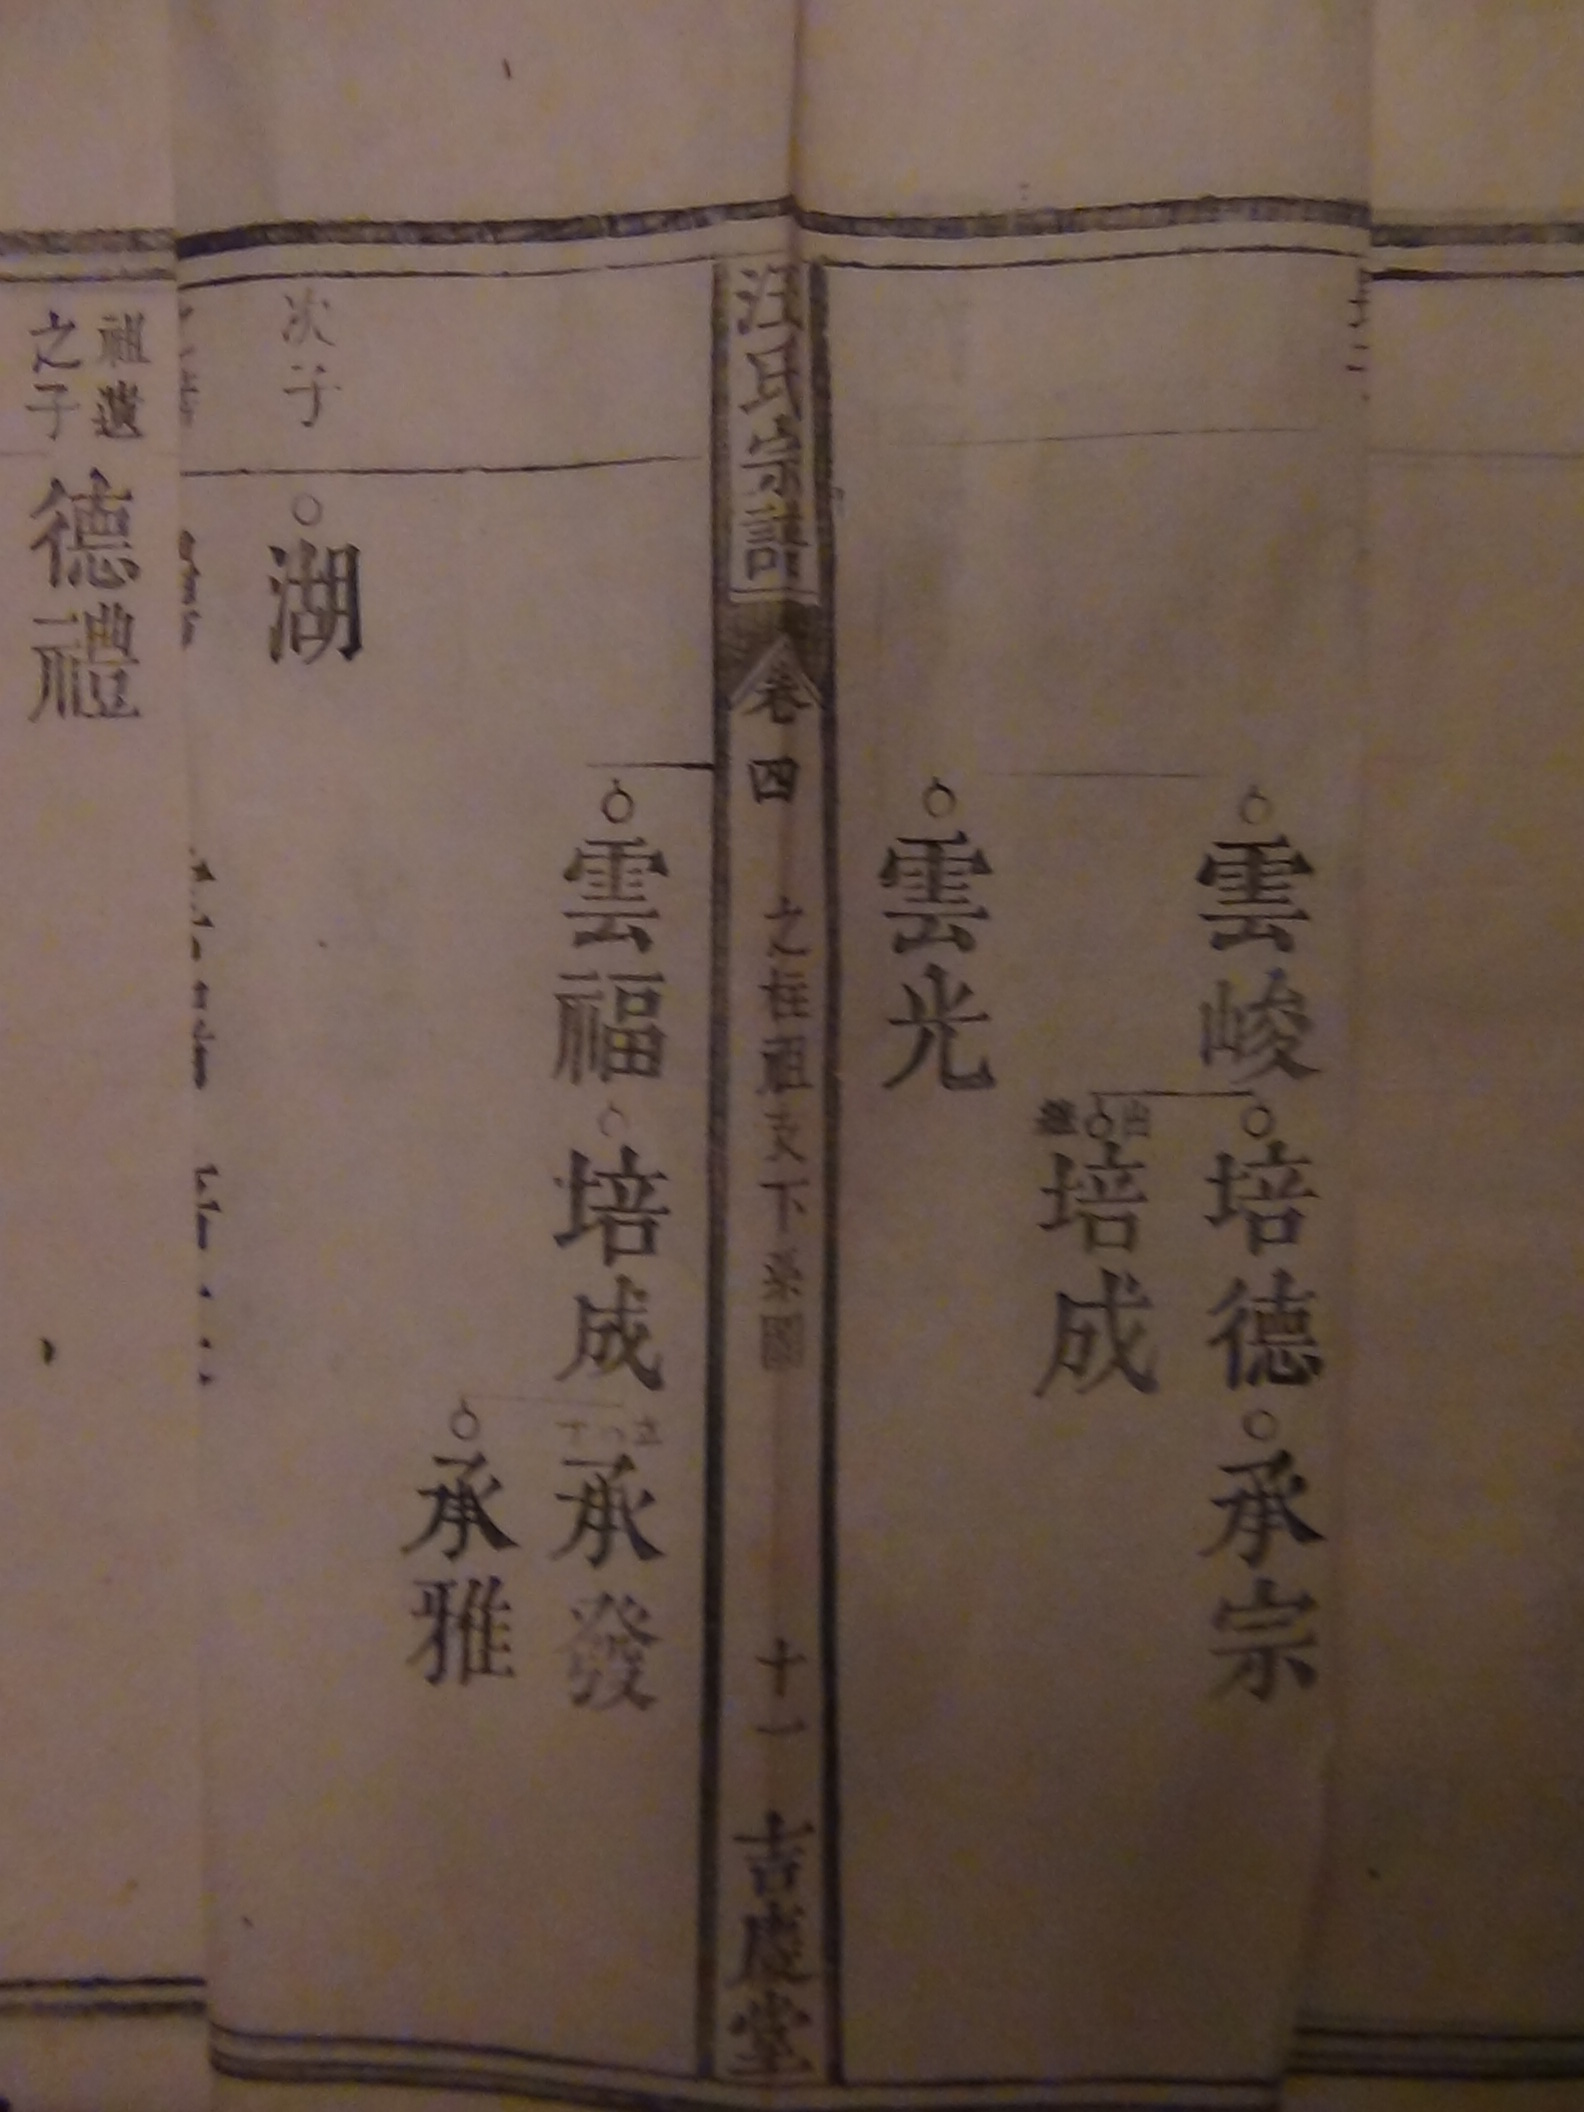 雲峻
培德
承宗
出繼
培成
雲光
汪氏宗譜
卷四
之桂祖支下系圖
十一
吉慶堂
雲福
培成
承發
承雅
次子
湖
祖遺
之子
德禮